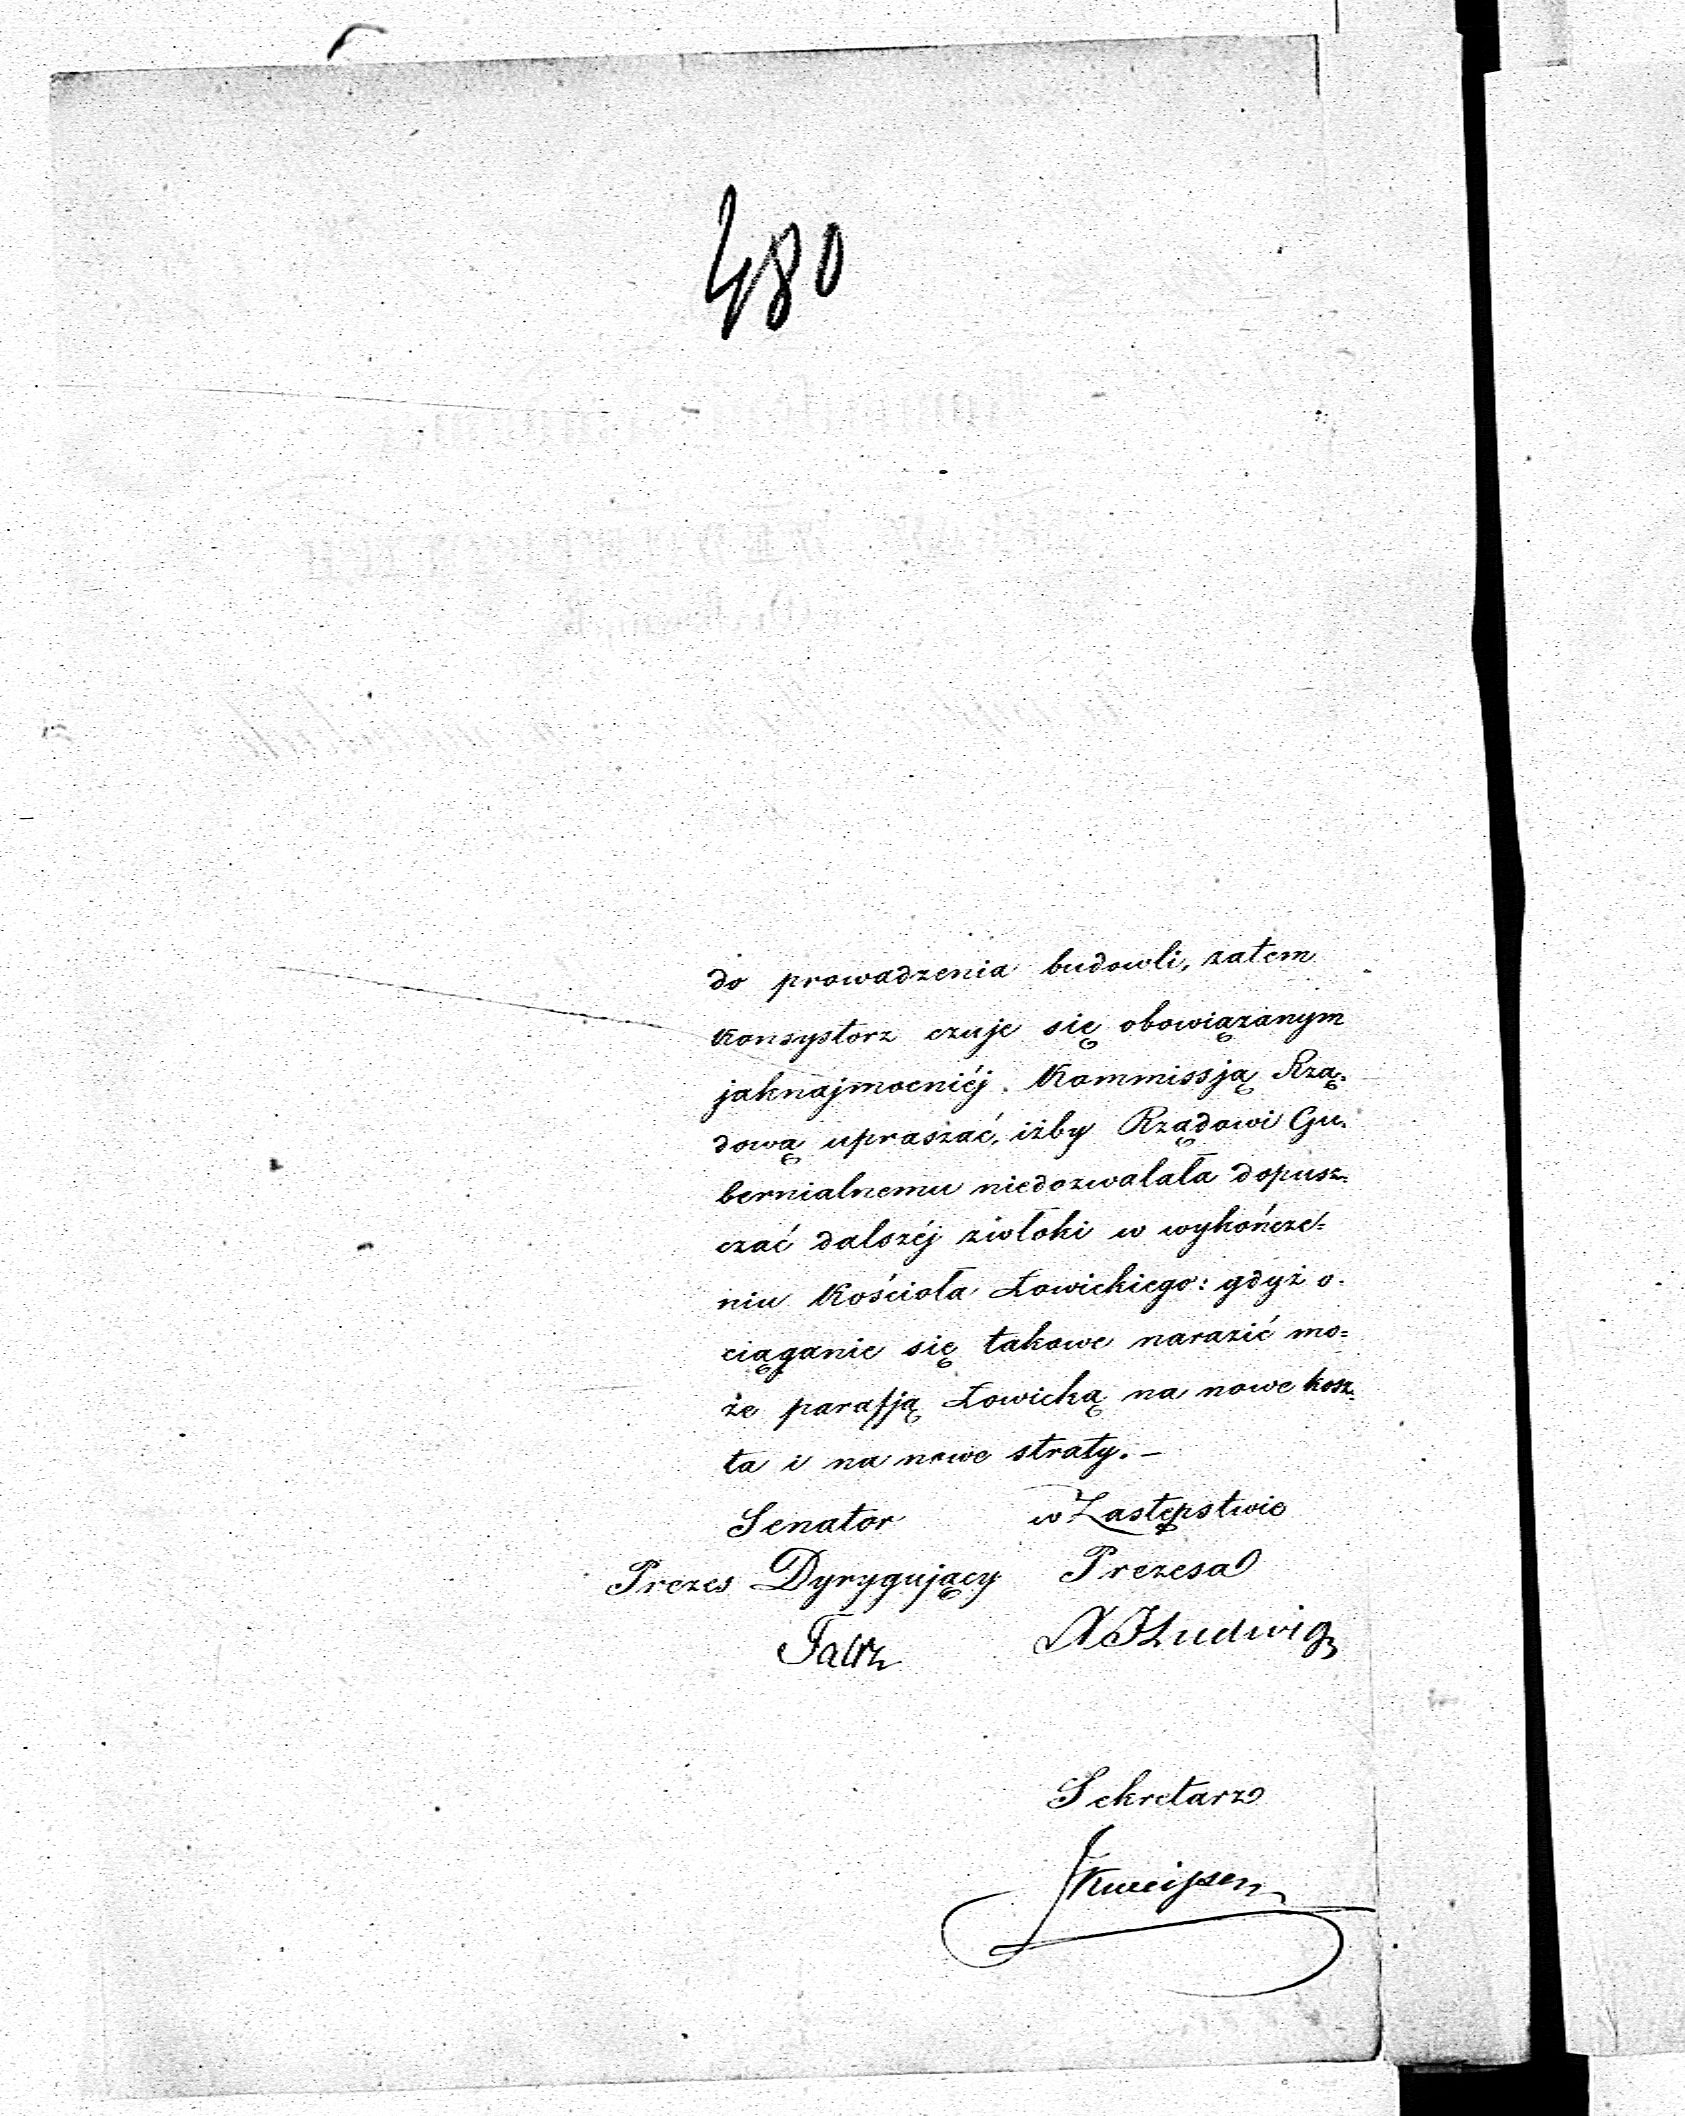 480
do prowadzenia budowli, zatem
Konsystorz czuje się obowiązanym
jaknajmocniéj Kommissją Rzą=
dową upraszać, iżby Rządowi Gu=
bernialnemu niedozwalała dopusz=
czać dalszéj zwłoki w wykończe=
niu Kościoła Łowickiego: gdyż o=
ciąganie się takowe narazić mo=
że parafją Łowicką na nowe kosz=
ta i na nowe straty. –
Senator w Zastępstwie
Prezes Dyrygujący Prezesa
Ludwig
Sekretarz